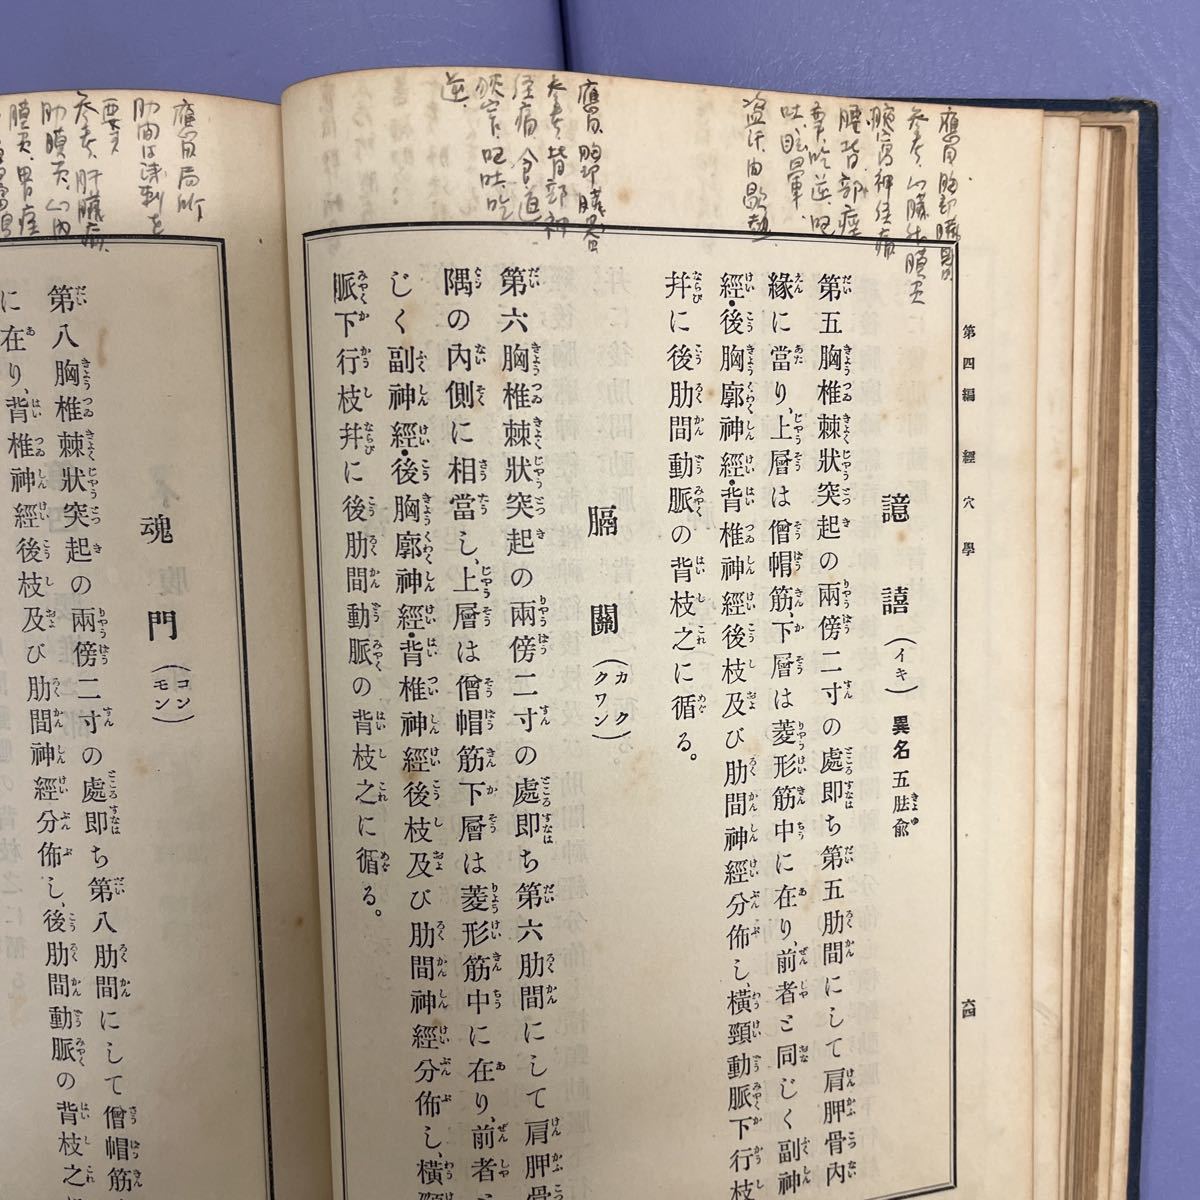 第四編 經穴學 六四
譩譆(イキ) 異名五胠兪
第五胸椎棘狀突起の兩傍二寸の處即ち第五肋間にして肩胛骨內
緣に當り、上層は僧帽筋、下層は菱形筋中に在り、前者と同じく副神
經・後胸廓神經・背椎神經後枝及び肋間神經分佈し、橫頸動脈下行枝
幷に後肋間動脈の背枝之に循る。
膈關(カククワン)
第六胸椎棘狀突起の兩傍二寸の處即ち第六肋間にして肩胛骨
隅の內側に相當し、上層は僧帽筋下層は菱形筋中に在り、前者
じく副神經・後胸廓神經・背椎神經後枝及び肋間神經分佈し、橫頸
脈下行枝幷に後肋間動脈の背枝之に循る。
應胃、胸部臓器
參考、背部神
経痛、食道
狹窄、呕吐、吃
逆、
魂門(コンモン)
第八胸椎棘狀突起の兩傍二寸の處即ち第八肋間にして僧帽筋
に在り、背椎神經後枝及び肋間神經分佈し、後肋間動脈の背枝之
參考、肝臟病、
肋膜炎、心內
膜炎、胃痙